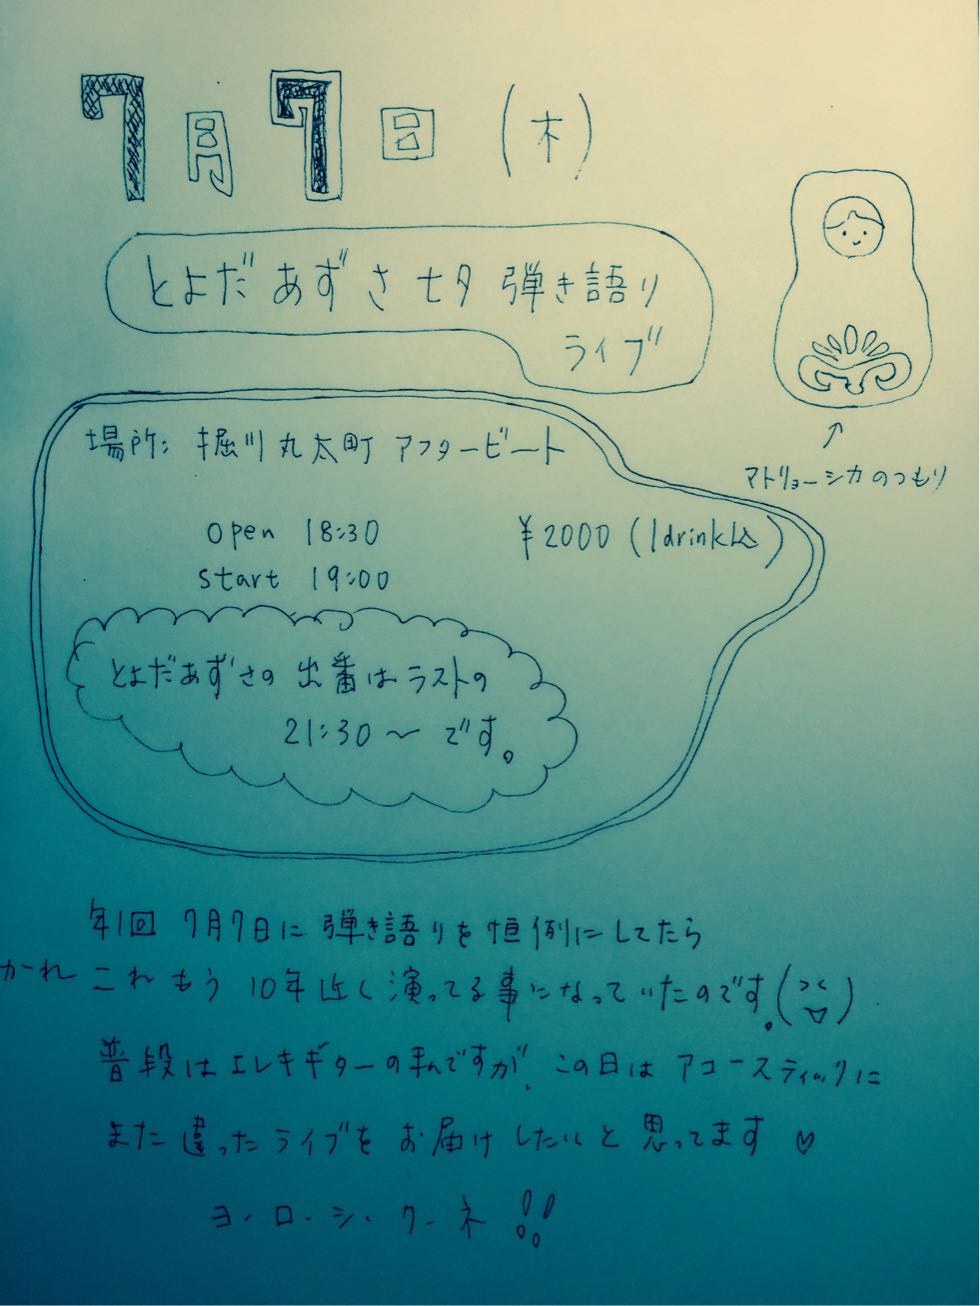 7月7日 (木)
とよだあずさ 七夕 弾き語り
ライブ
場所: 堀川丸太町 アフタービート
open 18:30
¥2000 (1drink込)
start 19:00
とよだあずさの 出番はラストの
21:30〜 です。
マトリョーシカのつもり
年1回 7月7日に 弾き語りを 恒例にしてたら
かれこれ もう 10年近く 演ってる事になっていたのです。
普段はエレキギターの みですが、この日は アコースティックに
また 違ったライブを お届けしたいと 思ってます♡
ヨ・ロ・シ・ク・ネ!!